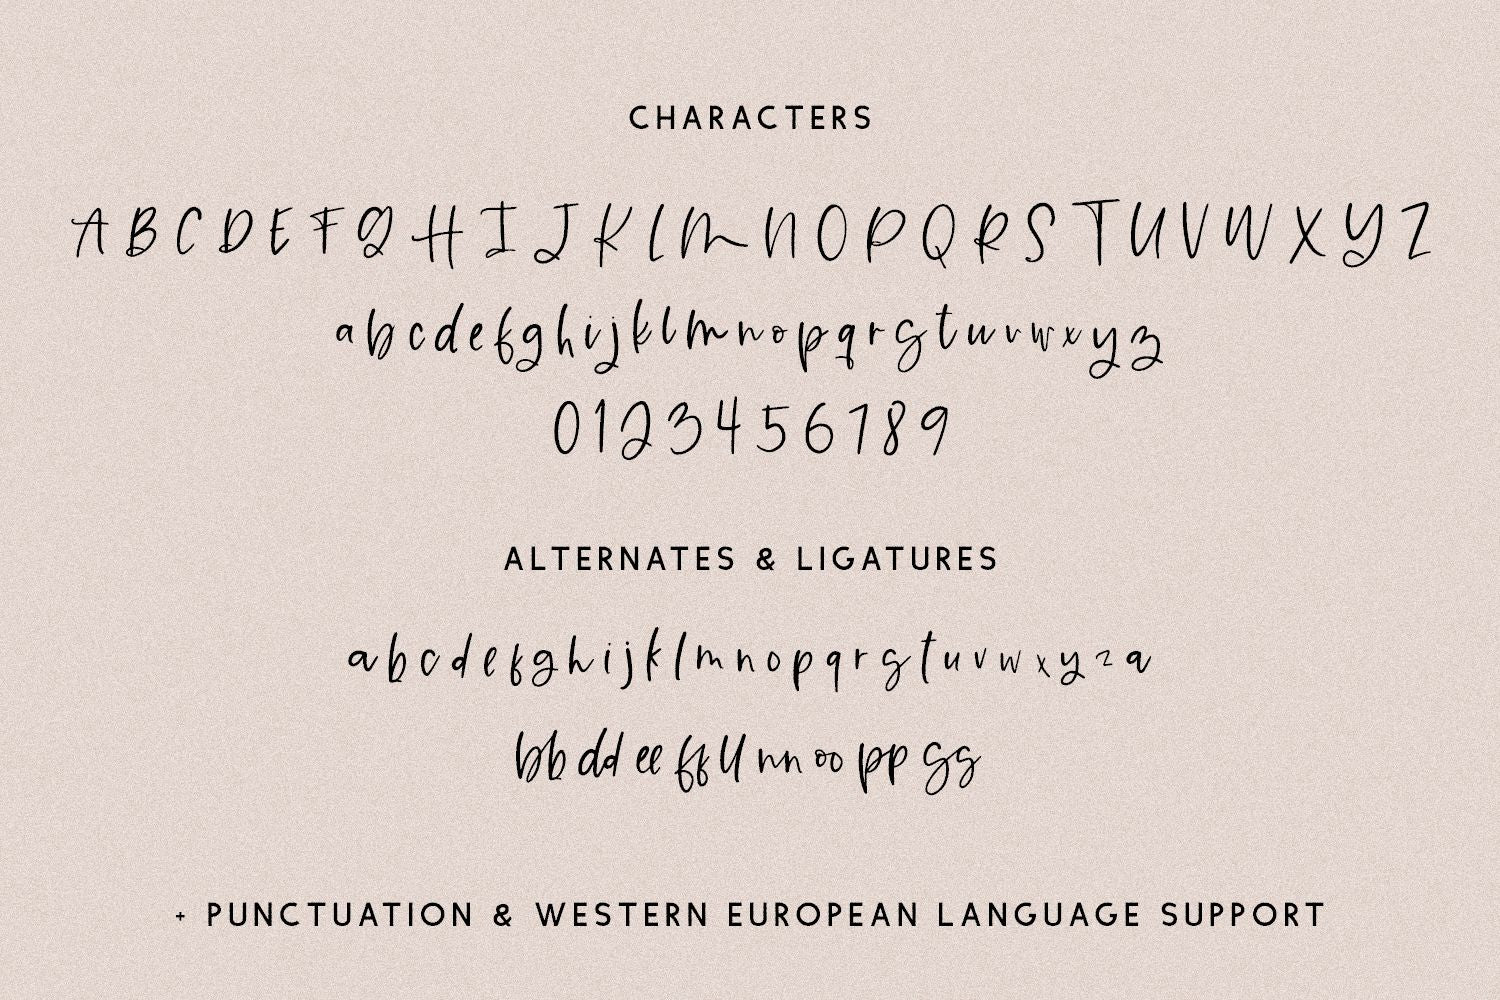 CHARACTERS
A B C D E F G H I J K L M N O P Q R S T U V W X Y Z
a b c d e f g h i j k l m n o p q r s t u v w x y z
0 1 2 3 4 5 6 7 8 9
ALTERNATES & LIGATURES
a b c d e f g h i j k l m n o p q r s t u v w x y z a
bb dd ee ff ll nn oo pp ss
+ PUNCTUATION & WESTERN EUROPEAN LANGUAGE SUPPORT